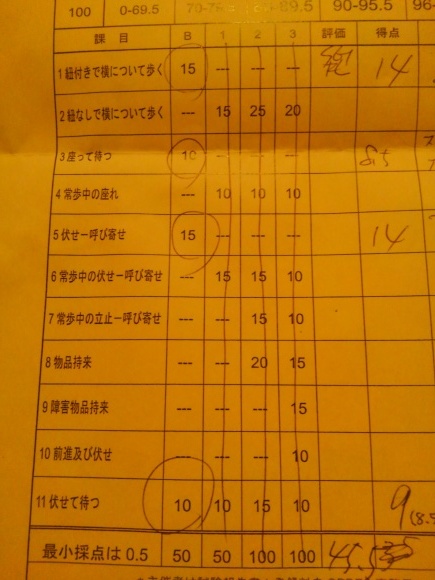 100 0-69.5 90-95.5 96-
課目 B 1 2 3 評価 得点
1紐付きで横について歩く 15 --- --- --- 14
2紐なしで横について歩く --- 15 25 20
3座って待つ 10 --- --- --- 8.5
4常歩中の座れ --- 10 10 10
5伏せー呼び寄せ 15 --- --- --- 14
6常歩中の伏せー呼び寄せ --- 15 15 10
7常歩中の立止ー呼び寄せ --- --- 15 10
8物品持来 --- --- 20 15
9障害物品持来 --- --- --- 15
10前進及び伏せ --- --- --- 10
11伏せて待つ 10 10 15 10 9 (8.5
最小採点は0.5 50 50 100 100 45.5